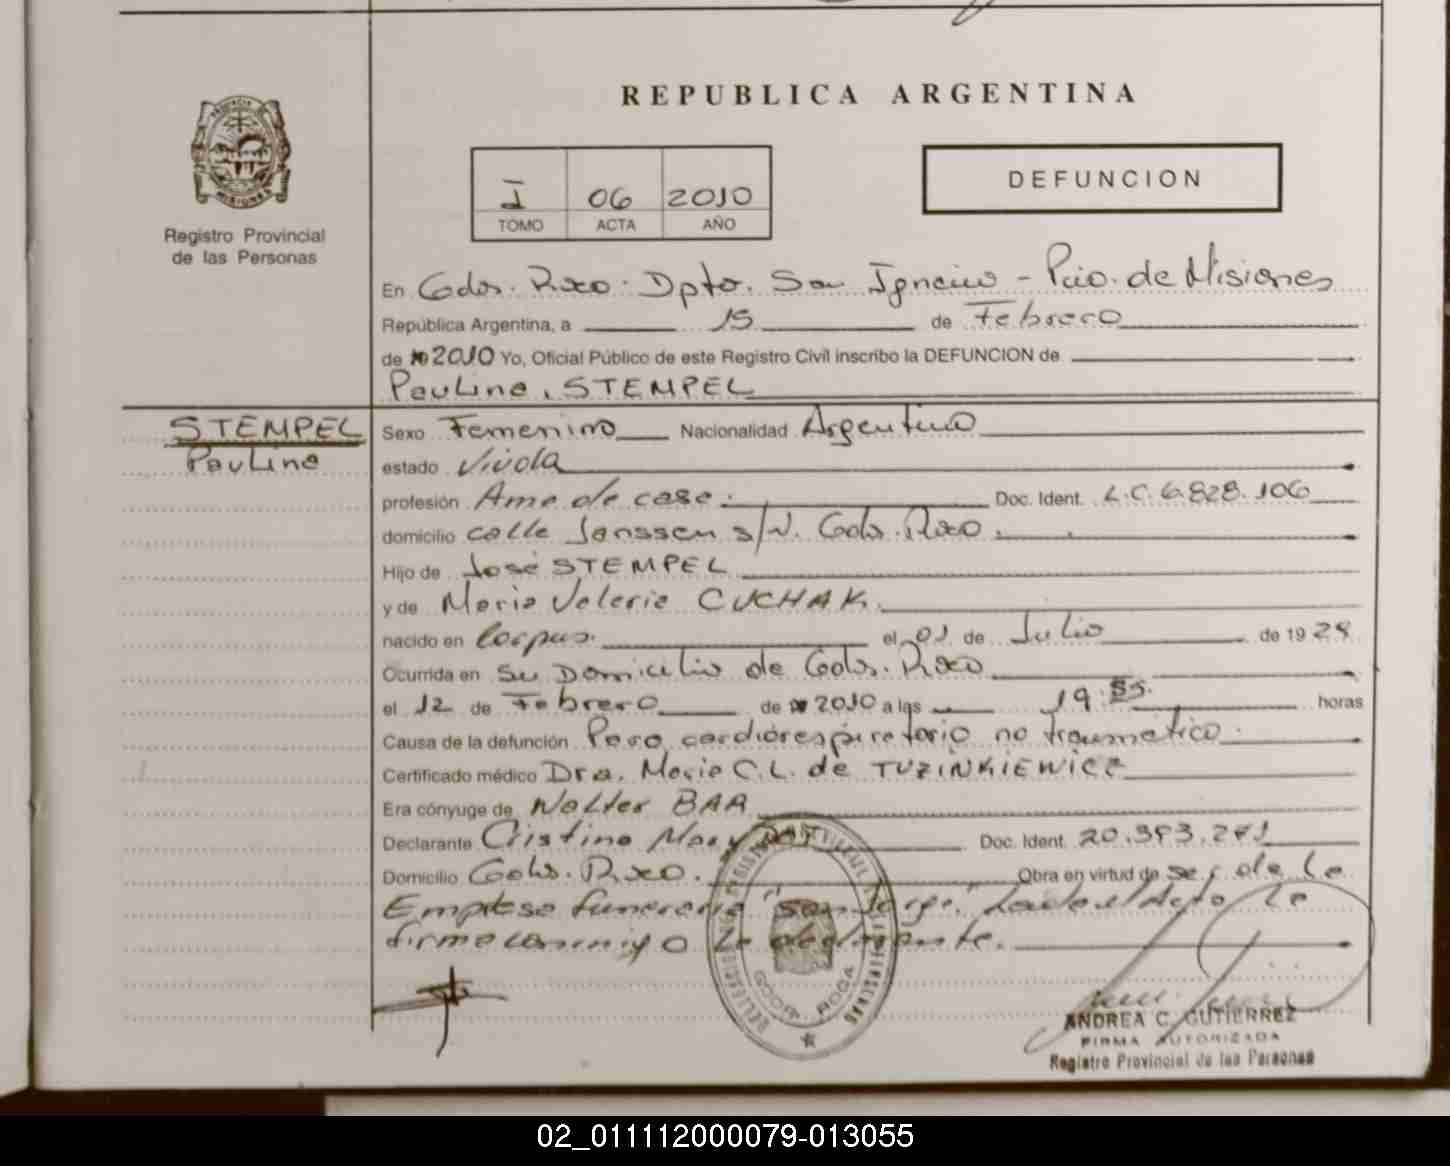 REPUBLICA ARGENTINA
DEFUNCION
I 06 2010
TOMO ACTA AÑO
PROVINCIA DE MISIONES
Registro Provincial
de las Personas
En Gdor. Roca. Dpto. San Ignacio - Pcio. de Misiones
República Argentina, a 15 de Febrero
de 2010 Yo, Oficial Público de este Registro Civil inscribo la DEFUNCION de
Paulina, STEMPEL
STEMPEL
Paulina
Sexo Femenino Nacionalidad Argentina
estado Viuda
profesión Ama de casa. Doc. Ident. L.C. 6.828.106
domicilio calle Janssen s/N. Gdor. Roca.
Hijo de José STEMPEL
y de Maria Valeria CUCHAK
nacido en Corpus. el 01 de Julio de 19
Ocurrida en su Domicilio de Gdor. Roca
el 12 de Febrero de 2010 a las 19:55. horas
Causa de la defunción Paro cardiorespiratorio no traumático.
Certificado médico Dra. Maria C.L. de TUZINKIEWICZ
Era cónyuge de Walter BAR
Declarante Cristina Doc. Ident. 20.393.271
Domicilio Gdor. Roca. Obra en virtud de ser de la
Empresa funeraria "San Jorge". Leida el Acta la
firma conmigo la declarante.
GDOR. ROCA
ANDREA C. GUTIERREZ
FIRMA AUTORIZADA
Registro Provincial de las Personas
02_011112000079-013055